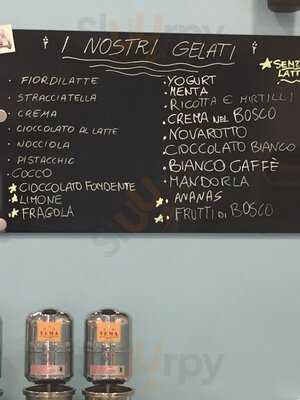 I NOSTRI GELATI
SENZA
LATTE
FIORDILATTE
STRACCIATELLA
CREMA
CIOCCOLATO AL LATTE
NOCCIOLA
PISTACCHIO
COCCO
CIOCCOLATO FONDENTE
LIMONE
FRAGOLA
YOGURT
MENTA
RICOTTA E MIRTILLI
CREMA NEL BOSCO
NOVAROTTO
CIOCCOLATO BIANCO
BIANCO CAFFÈ
MANDORLA
ANANAS
FRUTTI DI BOSCO
TEMA
TEMA
Sluurpy